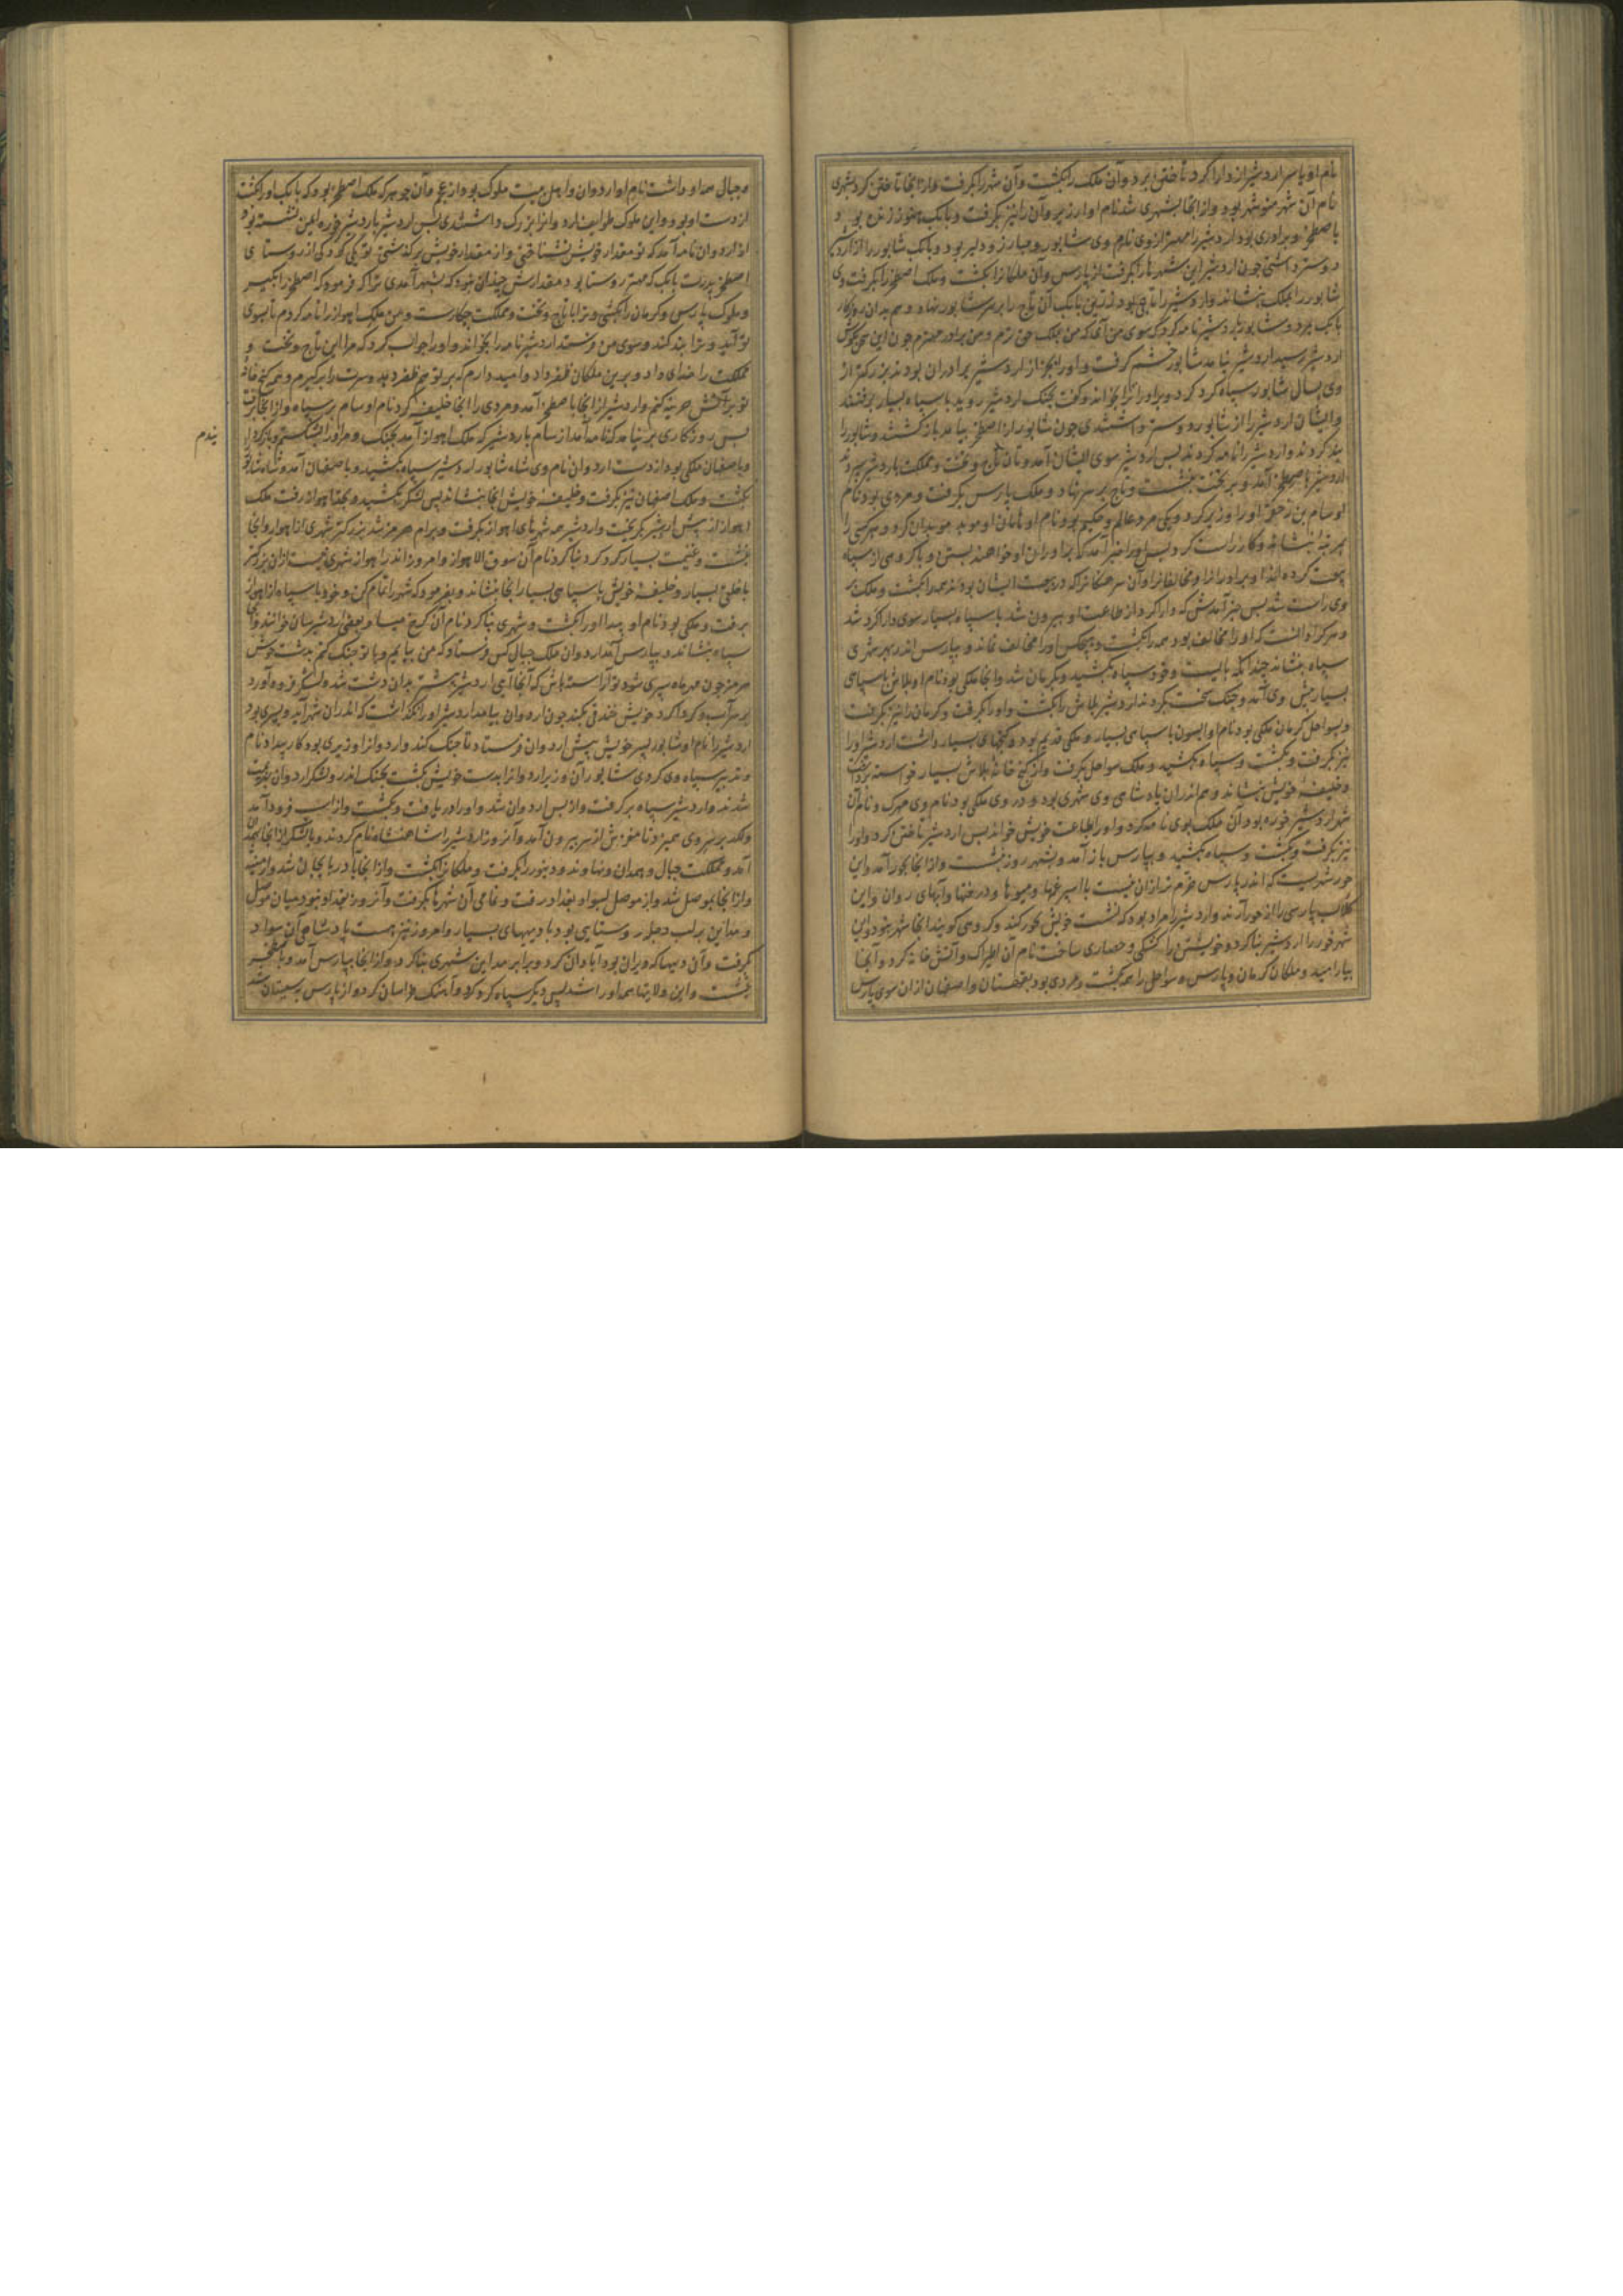 نام او با سر اردشیر از دارا کرد تاختن برد و آن ملک را بکشت و آن شهر را بکرفت و از آنجا تاختن کرد بشهری
نام آن شهر بود و از آنجا بشهری شد نام او ارزیر و آن را نیز بکرفت و بابک هنوز زنده بود
باصطخر و برادری بود اردشیر را مهتر از وی نام وی شاپور و مبارز و دلیر بود و بابک شاپور را از اردشیر
دوستر داشتی چون اردشیر این شهرها را بکرفت از پارس و آن ملکانرا بکشت و ملک اصطخر را بکرفت وی
شاپور را بملک بنشاند و اردشیر را تاجی بود زرین بابک آن تاج را بر سر شاپور نهاد و هم بدان روزکار
بابک بمرد و شاپور باردشیر نامه کرد که سوی من آی که من بملک حق ترم و من برادر مهترم چون این سخن بکوش
اردشیر رسید اردشیر نیامد شاپور خشم کرفت و اورا بجز از اردشیر برادران بودند بزرکتر از
وی بسال شاپور سپاه کرد کرد و برادرانرا بخواند و کفت بجنک اردشیر روید با سپاه بسیار برفتند
و ایشان اردشیر را از شاپور دوستر داشتندی چون شاپور از اصطخر بیامد باز کشتند و شاپور را
بند کردند و اردشیر را نامه کردند پس اردشیر سوی ایشان آمد و آن تاج و تخت و مملکت باردشیر سپردند
اردشیر باصطخر آمد و بر تخت بنشست و تاج بر سر نهاد و ملک پارس بکرفت و مردی بود نام
او سام بن رجفر اورا وزیر کرد و یکی مرد عالم و حکیم بود نام او ماهان او موبد موبدان کرد و هر کسی را
بمرتبه بنشاند و کار راست کرد پس اورا خبر آمد که برادران او خواهند بستن و با کروهی از سپاه
بیعت کرده اند او برادرانرا و مخالفانرا و آن سرهنکانرا که در بیعت ایشان بودند همه را بکشت و ملک بر
وی راست شد پس خبر آمدش که دارا کرد از طاعت او بیرون شد با سپاه بسیار سوی دارا کرد شد
و هر کرا دانست که اورا مخالف بود همه را بکشت و هیچکس اورا مخالف نماند و بپارس اندر بهر شهری
سپاه بنشاند چندانکه بایست و خود سپاه بکشید و بکرمان شد و آنجا ملکی بود نام او بلاش با سپاهی
بسیار پیش وی آمد و جنک سخت بکردند اردشیر بلاش را بکشت و اورا بکرفت و کرمان را نیز بکرفت
و بسواحل کرمان ملکی بود نام او ابسون با سپاهی بسیار و ملکی قدیم بود و کنجهای بسیار داشت اردشیر اورا
نیز بکرفت و بکشت و سپاه بکشید و ملک سواحل بکرفت و از کنج خانه بلاش بسیار خواسته برداشت
و خلیفه خویش بنشاند و هم اندران پادشاهی وی شهری بود و در وی ملکی بود نام وی مهرک و نام آن
شهر اردشیر خوره بود آن ملک بوی نامه کرد و اورا بطاعت خویش خواند پس اردشیر تاختن کرد و اورا
نیز بکرفت و بکشت و سپاه بکشید و بپارس باز آمد و بشهر روز بنشست و از آنجا بجور آمد و این
جور شهریست که اندر پارس خرم تر از آن نیست با اسپرغمها و میوه ها و درختها و آبهای روان و این
کلاب پارسی را از جور آرند و اردشیر را مراد بود که نشست خویش بجور کند و کروهی کویند آنجا شهر نبود و این
شهر جور را اردشیر بنا کرد و خویشتن را کوشکی و حصاری ساخت نام آن اطیراک و آتش خانه کرد و آنجا
بیارامید و ملکان کرمان و پارس و سواحل را همه بکشت و مردی بود بقهستان و اصفهان از آن سوی پارس
و جبال همه او داشت نام او اردوان و اهل بیت ملوک بود از عجم و آن جوهر که ملک اصطخر بود که بابک اورا بکشت
از دست او بود و این ملوک طوایف اردوانرا بزرک داشتندی پس اردشیر باردشیر خوره ایمن نشسته بود
از اردوان نامه آمد که تو مقدار خویش نشناختی و از مقدار خویش برکذشتی تو یکی کودکی از روستای
اصطخر پدرت بابک که مهتر روستا بود مقدارش چندان نبود که بشهر آمدی ترا که فرمود که اصطخر را بکیر
و ملوک پارس و کرمان را بکشی و ترا با تاج و تخت و مملکت چکارست و من ملک اهواز را نامه کردم تا سوی
تو آید و ترا بند کند و سوی من فرستد اردشیر نامه را بخواند و اورا جواب کرد که مرا این تاج و تخت و
مملکت را خدای داد و برین ملکان ظفر داد و امید دارم که بر تو نیز ظفر دهد و سرت را برکیرم و همه کنج خانه
تو بر آتش هزینه کنم و اردشیر از آنجا باصطخر آمد و مردی را آنجا خلیفه کرد نام او سام بر سپاه و از آنجا برفت
بس روزکاری بر نیامد که نامه آمد از سام باردشیر که ملک اهواز آمد بجنک و من اورا بشکستم و باز کردانیدم
و باصفهان ملکی بود از دست اردوان نام وی شاه شاپور اردشیر سپاه بکشید و باصفهان آمد و شاه شاپور
بکشت و ملک اصفهان نیز بکرفت و خلیفه خویش آنجا بنشاند پس لشکر بکشید و بحد اهواز رفت ملک
اهواز از پیش اردشیر بکریخت و اردشیر همه شهرهای اهواز بکرفت و برام هرمز شد بزرکتر شهری از اهواز و آنجا
بنشست و غنیمت بسیار کرد کرد و بنا کرد نام آن سوق الاهواز و امروز اندر اهواز شهری نیست ازان بزرکتر
با خلق بسیار و خلیفه خویش با سپاهی بسیار آنجا بنشاند و بفرمود که شهر را تمام کن و خود با سپاه از اهواز
برفت و ملکی بود نام او بیدا اورا بکشت و شهری بنا کرد نام آن کرخ میسا و بعضی اردشیرسان خوانند و آنجا
سپاه بنشاند و بپارس آمد اردوان ملک جبال کس فرستاد که من بیایم و با تو جنک کنم بدشت خوش
هرمز چون مهرماه سپری شود تو آراسته باش که آنجا آیی اردشیر پیشتر بدان دشت شد و لشکر فرود آورد
بر سر آب و کرداکرد خویش خندقی بکند چون اردوان بیامد اردشیر اورا نکذاشت که اندران شهر آید و پسری بود
اردشیر را نام او شاپور پسر خویش پیش اردوان فرستاد تا جنک کند و اردوانرا وزیری بود کار بیداد نام
و تدبیر سپاه وی کردی شاپور آن وزیر اردوانرا بدست خویش بکشت بجنک اندر و لشکر اردوان بهزیمت
شدند و اردشیر سپاه برکرفت و از پس اردوان شد و اورا دریافت و بکشت و از اسب فرود آمد
و لکد بر سر وی همیزد تا مغزش از سر بیرون آمد و آن روز اردشیر را شاهنشاه نام کردند و با لشکر از آنجا بهمدان
آمد و مملکت جبال و همدان و نهاوند و دینور را بکرفت و ملکانرا بکشت و از آنجا بآذربایجان شد و ارمنیه
و از آنجا بموصل شد و از موصل بسواد بغداد رفت و تمامی آن شهرها بکرفت و آنروز بغداد نبود میان موصل
و مداین بر لب دجله روستایی بود با دیهای بسیار و امروز نیز هست پادشاهی آن سواد
بکرفت و آن دیهها که ویران بود آبادان کرد و برابر مداین شهری بنا کرد و از آنجا بپارس آمد و باصطخر
بنشست و این ولایتها همه اورا شد پس دیکر سپاه کرد کرد و آهنک خراسان کرد و از پارس بسیستان شد